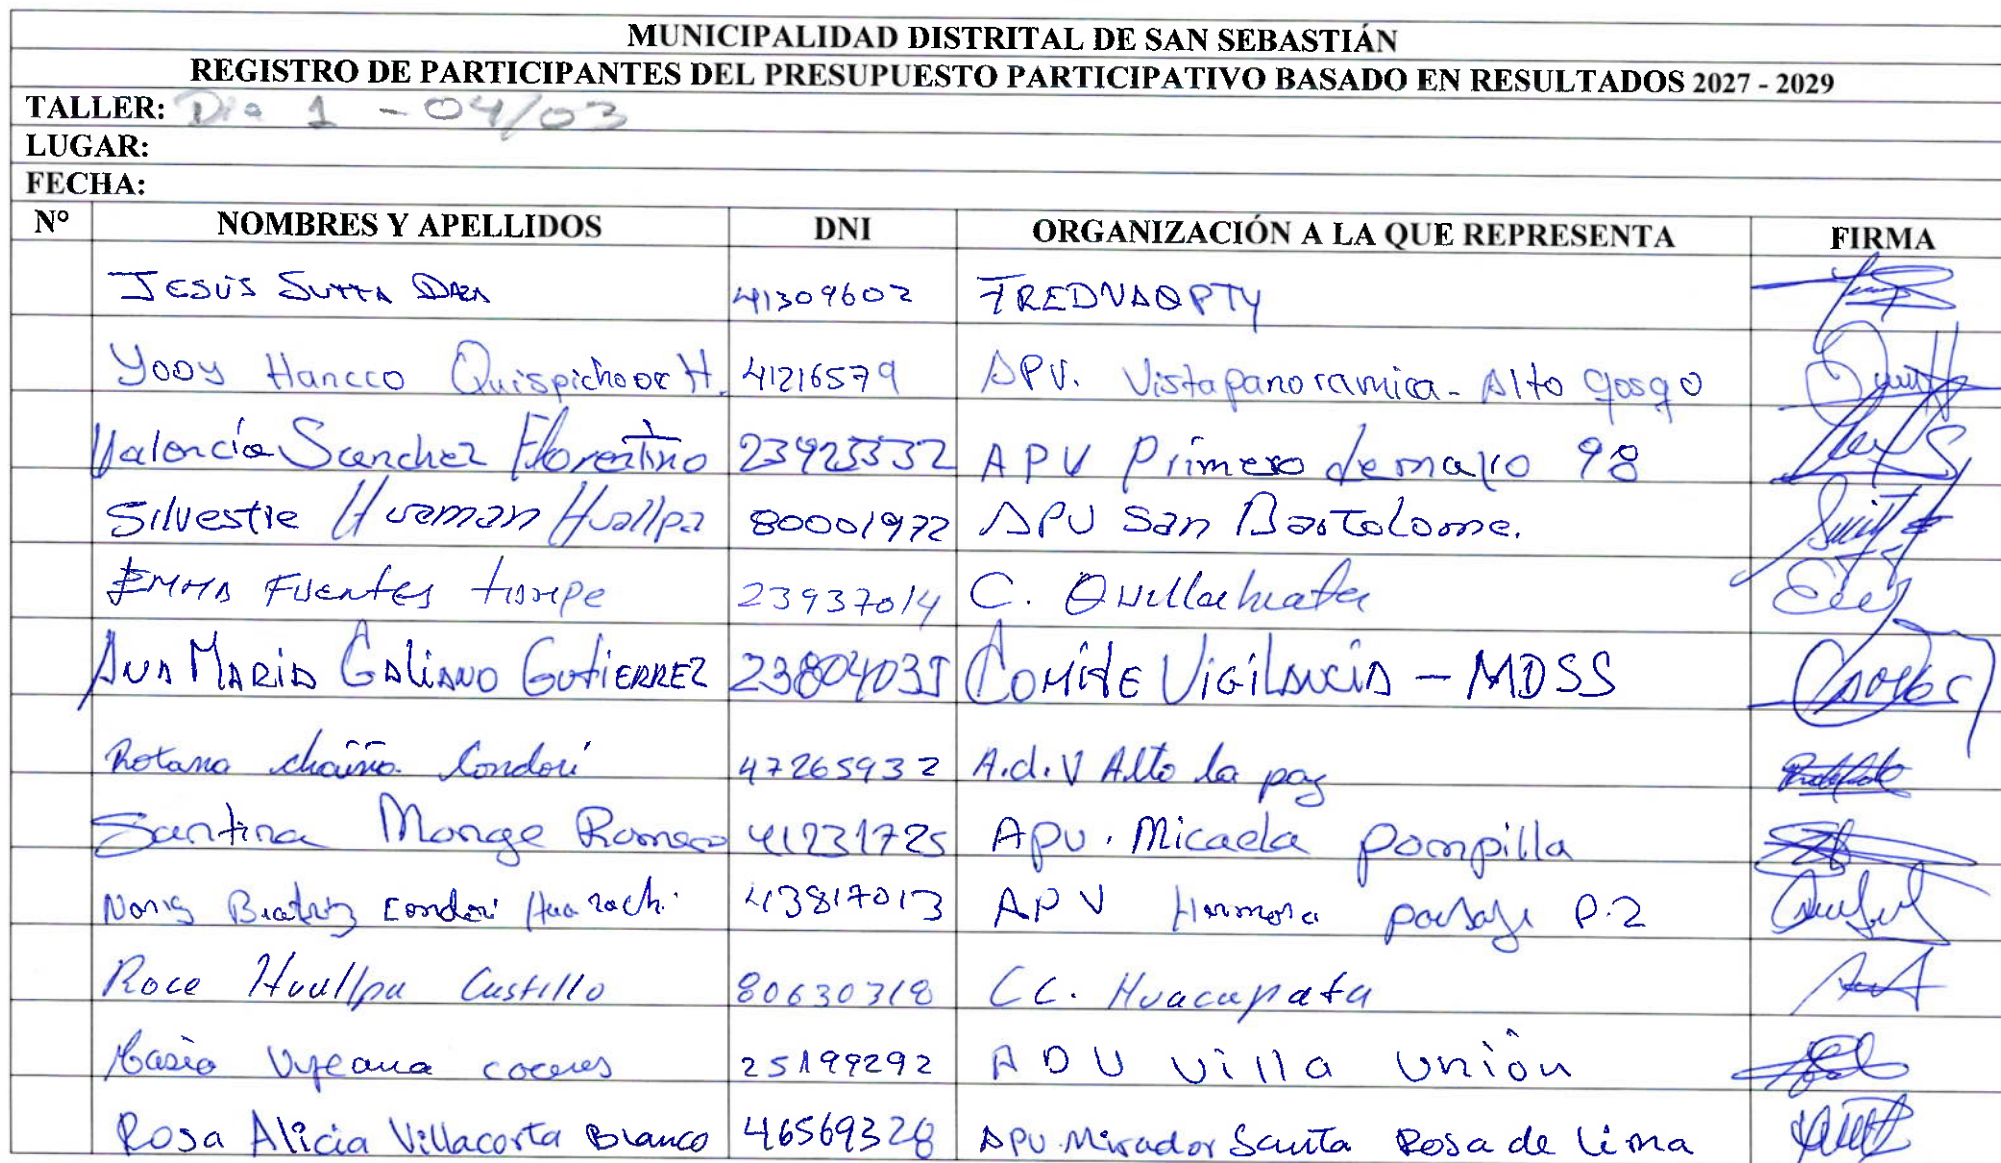 MUNICIPALIDAD DISTRITAL DE SAN SEBASTIÁN
REGISTRO DE PARTICIPANTES DEL PRESUPUESTO PARTICIPATIVO BASADO EN RESULTADOS 2027 - 2029
TALLER: Dia 1 - 04/03
LUGAR:
FECHA:
N° NOMBRES Y APELLIDOS DNI ORGANIZACIÓN A LA QUE REPRESENTA FIRMA
JESÚS SUTTA DAZA 41309602
Yody Hancco H. 41216579 APV. Vista panoramica - Alto qosqo
Valencia Sanchez Florentino APV Primero de mayo 98
Silvestre Huaman Huallpa 80001972 APV San Bartolome.
EMMA FUENTES 23937014 C. Quillahuata
ANA MARIA GALIANO GUTIERREZ COMITE VIGILANCIA - MDSS
Condori 47265932 A.d.V Alto la paz
Santina Monge Romero 41231725 Apv. Micaela pompilla
Beatriz Condori 43817013 APV Hermosa paisaje P.2
Roce Huallpa Castillo 80630318 CC. Huacapata
25199292 ADV Villa Unión
Rosa Alicia Villacorta Blanco 46569328 APV Mirador Santa Rosa de Lima